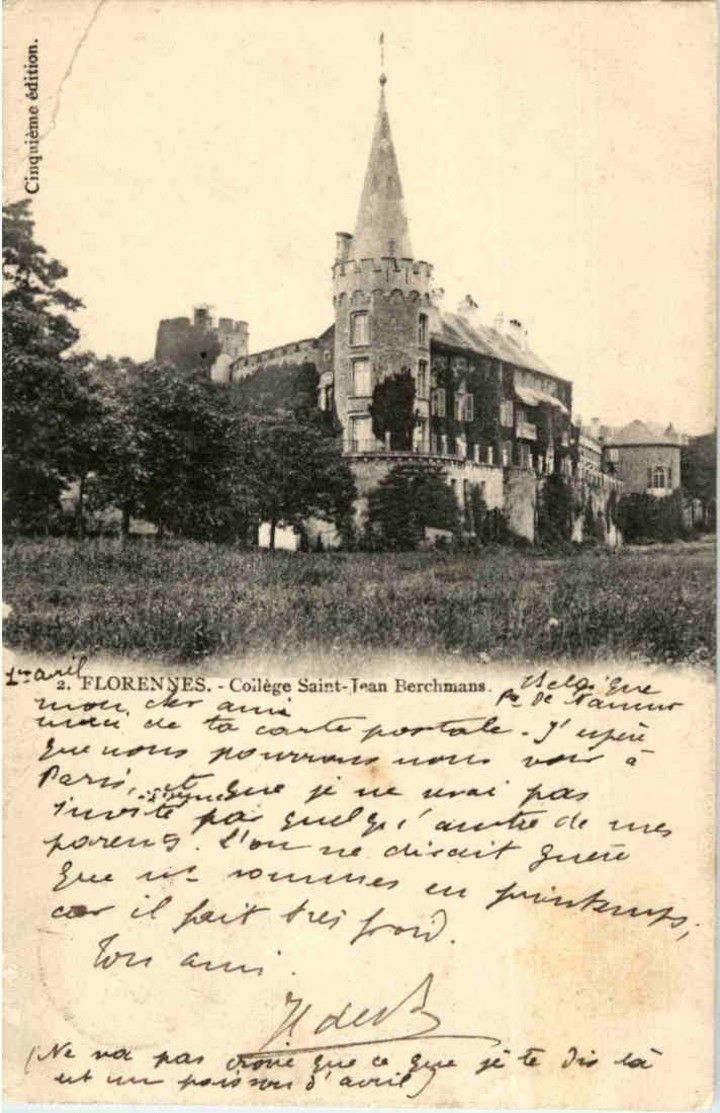 Cinquième édition.
1er avril
2. FLORENNES. - Collège Saint-Jean Berchmans.
Belgique
Pce De Namur
mon cher ami
merci de ta carte postale. J'espère
que nous pourrons nous voir à
Paris, et que je ne serai pas
invité par quelqu'autre de mes
parents. L'on ne dirait guère
que nous sommes en printemps,
car il fait très froid.
Ton ami
H de
(Ne va pas croire que ce que je te dis là
est un poisson d'avril)